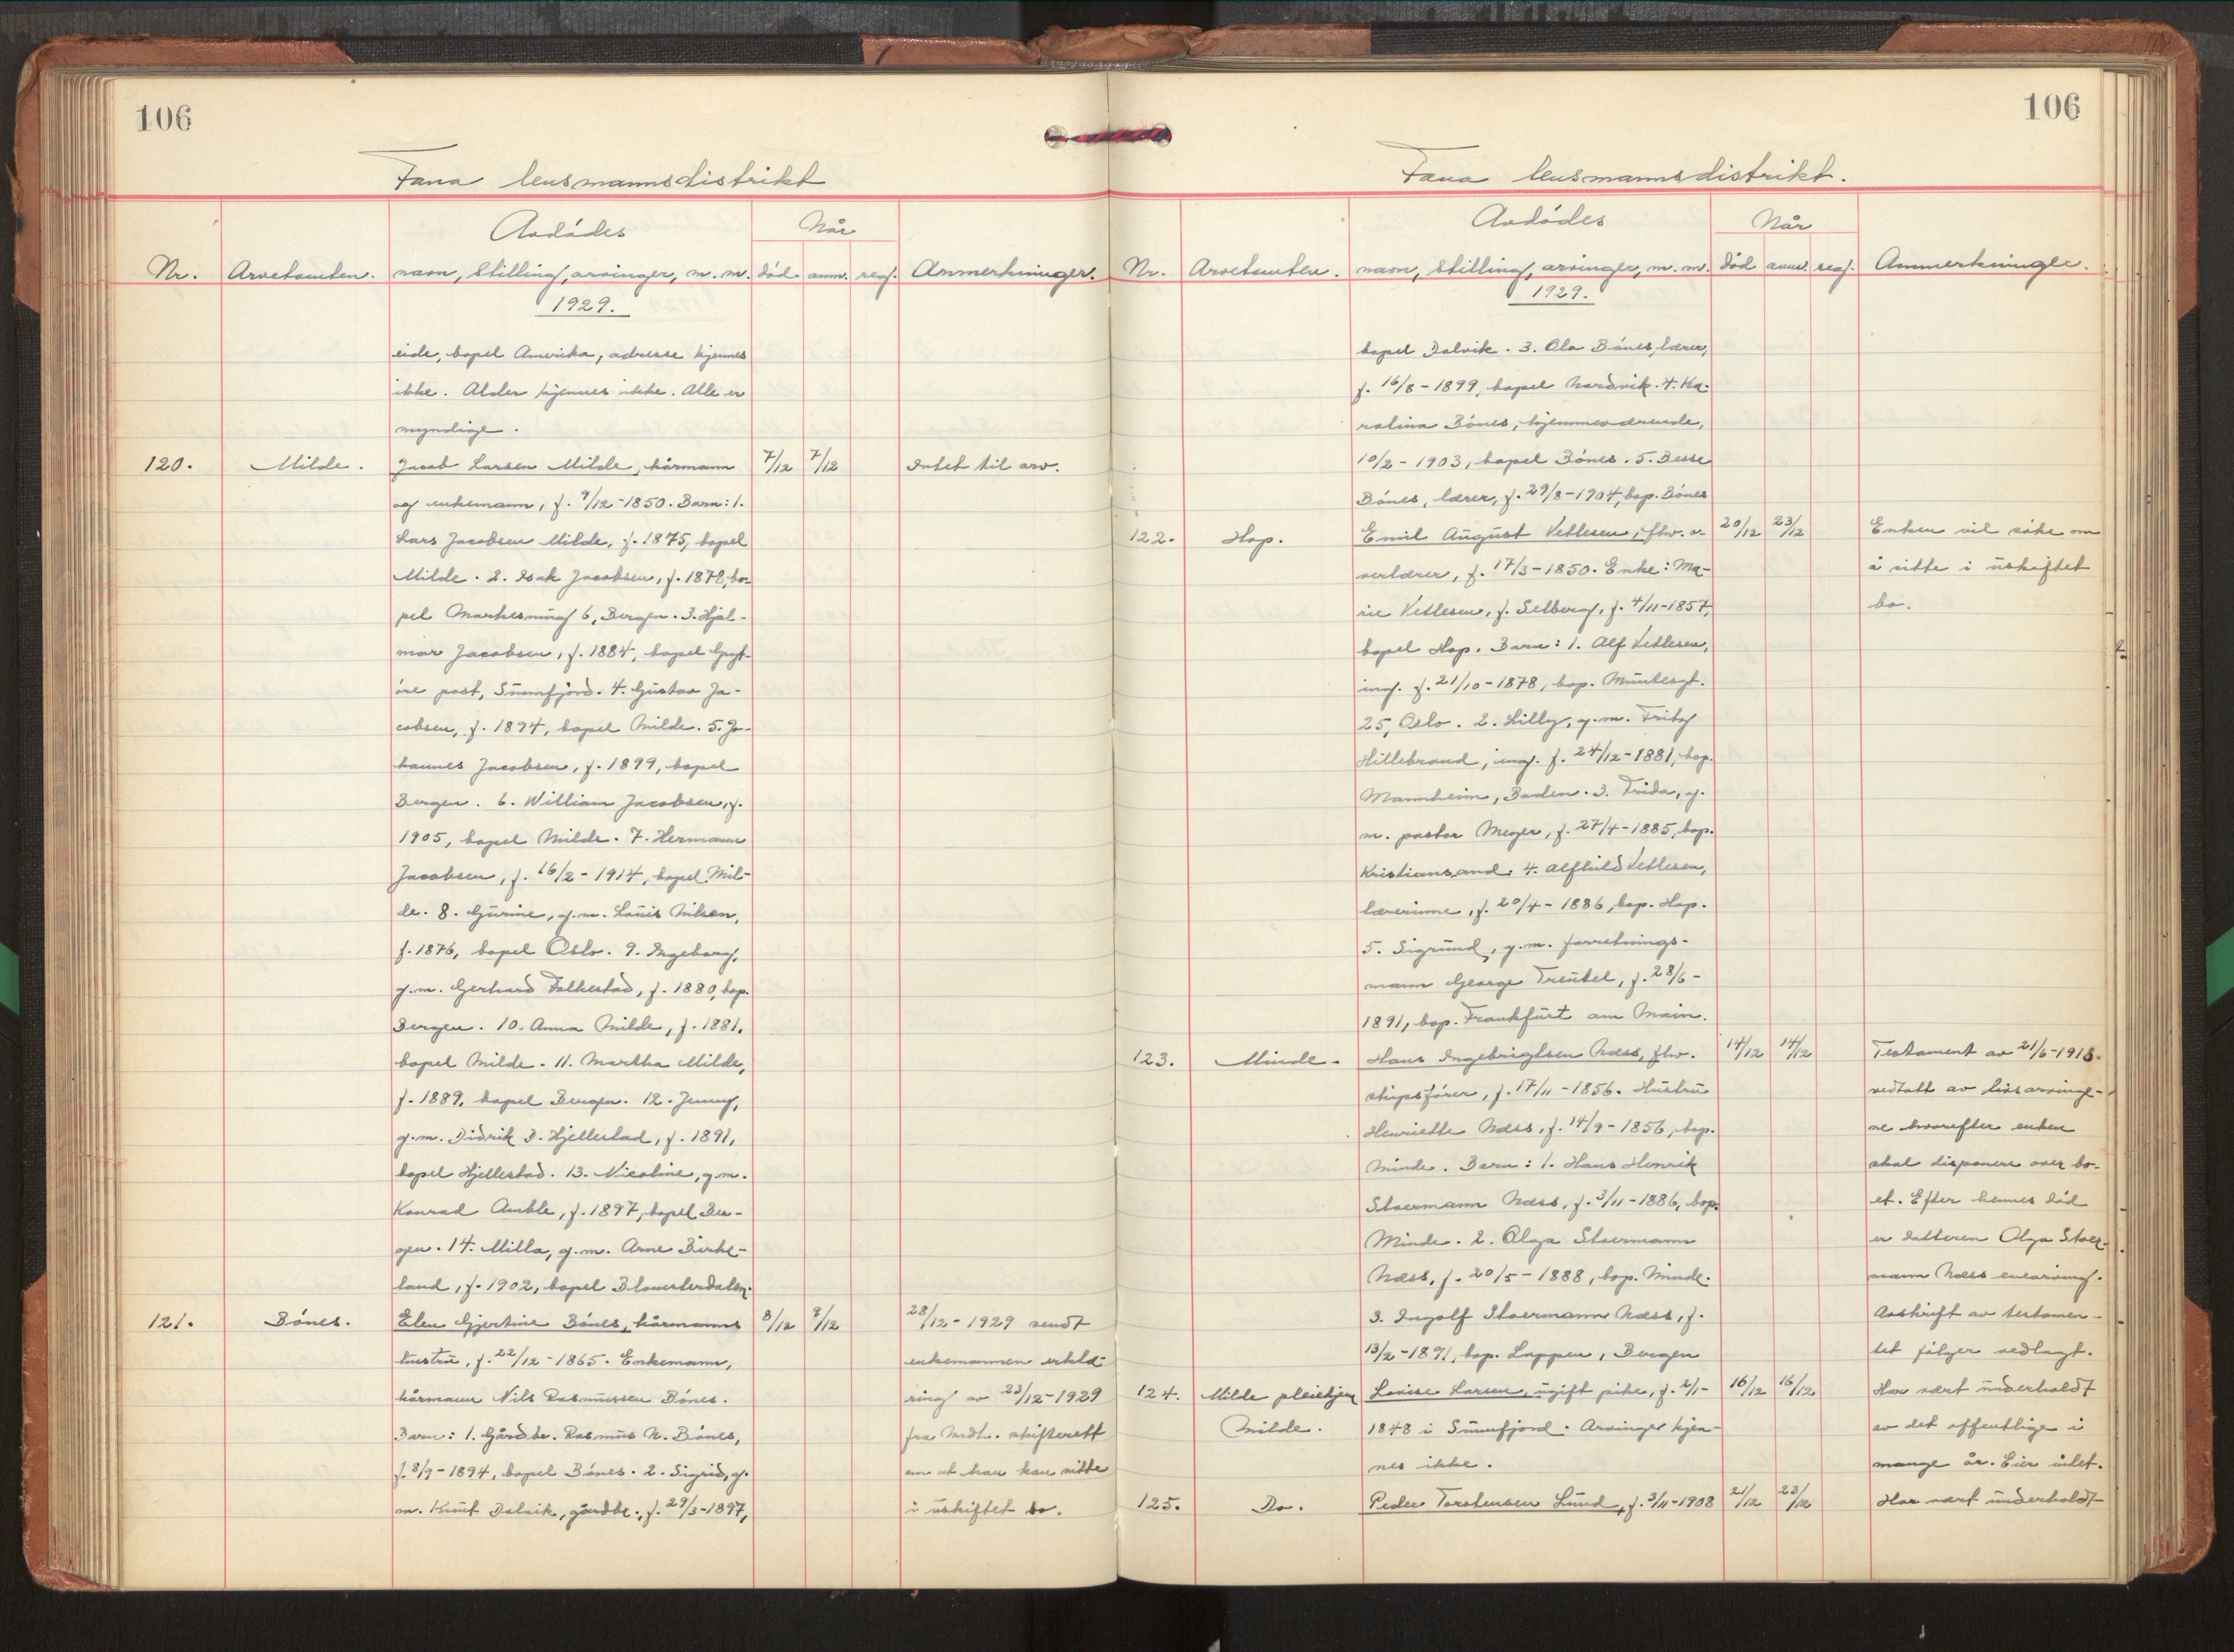 106
Fana lensmannsdistrikt
Avdødes
Når
Nr. Arvetomten. navn, stilling, arvinger, m. m. død anm. reg. Anmerkninger.
1929.
eide, bopel Amerika, adresse kjennes
ikke. Alder kjennes ikke. Alle er
myndige.
120. Milde. Jacob Larsen Milde, kårmann 7/12 7/12 Intet til arv.
og enkemann, f. 9/12-1850. Barn: 1.
Lars Jacobsen Milde, f. 1875, bopel
Milde. 2. Isak Jacobsen, f. 1878, bo-
pel 6, Bergen. 3. Hjal-
mar Jacobsen, f. 1884, bopel
post, Sunnfjord. 4. Gustav Ja-
cobsen, f. 1894, bopel Milde. 5. Jo-
hannes Jacobsen, f. 1899, bopel
Bergen. 6. William Jacobsen, f.
1905, bopel Milde. 7. Hermann
Jacobsen, f. 16/2-1914, bopel Mil-
de. 8. Gurine, g.m. Louis Nilsen,
f. 1876, bopel Oslo. 9. Ingeborg,
g.m. Gerhard Falkestad, f. 1880, bop.
Bergen. 10. Anna Milde, f. 1881,
bopel Milde. 11. Martha Milde,
f. 1889, bopel Bergen. 12. Jenny,
g.m. Didrik D. Hjellestad, f. 1891,
bopel Hjellestad. 13. Nicoline, g.m.
Konrad Amble, f. 1897, bopel Ber-
gen. 14. Milla, g.m. Arne Birke-
land, f. 1902, bopel Blomsterdalen.
121. Bønes. Elen Gjertine Bønes, kårmanns 8/12 9/12 28/12-1929 sendt
hustru, f. 22/12-1865. Enkemann, enkemannen erklæ-
kårmann Nils Rasmussen Bønes. ring av 23/12-1929
Barn: 1. Gårdbr. Rasmus N. Bønes, fra Mdh. skifterett
f. 8/9-1894, bopel Bønes. 2. Sigrid, g. om at han kan sitte
m. Knut Dalvik, gårdbr., f. 29/3-1897, i uskiftet bo.
106
Fana lensmannsdistrikt.
Avdødes
Når
Nr. Arvetomten. navn, stilling, arvinger, m. m. død anm. reg. Anmerkninger.
1929.
bopel Dalvik. 3. Ola Bønes, lærer,
f. 16/8-1899, bopel Nordvik. 4. Ka-
rolina Bønes, hjemmeværende,
10/2-1903, bopel Bønes. 5. Besse
Bønes, lærer, f. 29/8-1904, bop. Bønes
122. Hop. Emil August Vetlesen, fhv. o- 20/12 23/12 Enken vil søke om
verlærer, f. 17/3-1850. Enke: Ma- å sitte i uskiftet
rie Vetlesen, f. Selberg, f. 4/11-1857, bo.
bopel Hop. Barn: 1. Alf Vetlesen,
ing. f. 21/10-1878, bop. Muntesgt.
25, Oslo. 2. Lilly, g.m. Fritz
Hillebrand, ing. f. 24/12-1881, bop.
Mannheim, Baden. 3. Frida, g.
m. pastor Meyer, f. 27/4-1885, bop.
Kristiansand. 4. Alfhild Vetlesen,
lærerinne, f. 20/4-1886, bop. Hop.
5. Sigrund, g.m. forretnings-
mann George Treutel, f. 28/6-
1891, bop. Frankfurt am Main.
123. Minde. Hans Ingebrigtsen Næss, fhv. 14/12 14/12 Testament av 21/6-1918
skipsfører, f. 17/11-1856. Hustru vedtatt av livsarvinge-
Henriette Næss, f. 14/9-1856, bop. ne hvorefter enken
Minde. Barn: 1. Hans Henrik skal disponere over bo-
Stoermann Næss, f. 3/11-1886, bop. et. Efter hennes død
Minde. 2. Olga Stoermann er datteren Olga Stoer-
Næss, f. 20/5-1888, bop. Minde. mann Næss enearving.
3. Ingolf Stoermann Næss, f. Avskrift av testamen-
13/2-1891, bop. Loppen, Bergen tet følger vedlagt.
124. Milde pleiehjem Lovise Larsen, ugift pike, f. 2/1- 16/12 16/12 Har vært underholdt
Milde. 1848 i Sunnfjord. Arvinger kjen- av det offentlige i
nes ikke. mange år. Eier intet.
125. Do. Peder Torstensen Lund, f. 3/11-1908 21/12 23/12 Har vært underholdt